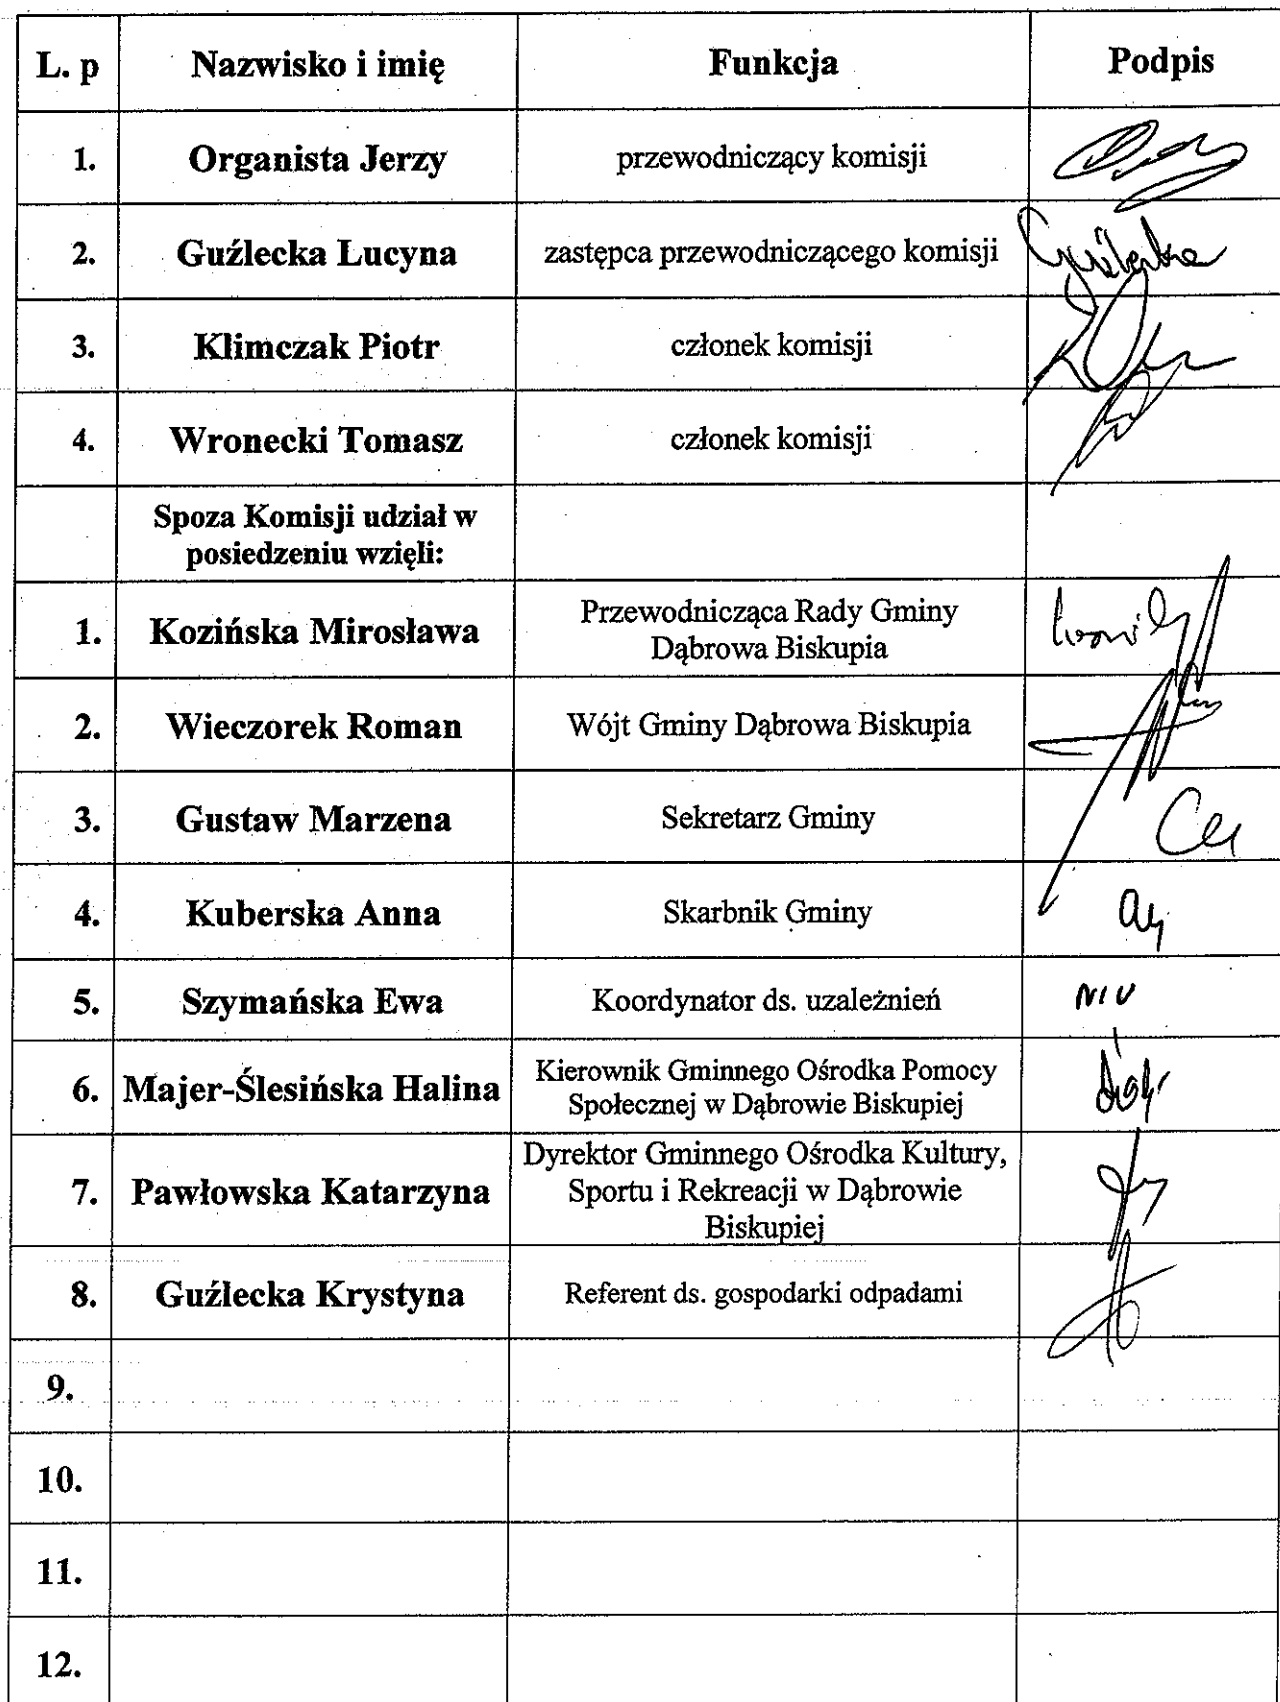 L. p Nazwisko i imię Funkcja Podpis
1. Organista Jerzy przewodniczący komisji
2. Guźlecka Łucyna zastępca przewodniczącego komisji
3. Klimczak Piotr członek komisji
4. Wronecki Tomasz członek komisji
Spoza Komisji udział w
posiedzeniu wzięli:
1. Kozińska Mirosława Przewodnicząca Rady Gminy
Dąbrowa Biskupia
2. Wieczorek Roman Wójt Gminy Dąbrowa Biskupia
3. Gustaw Marzena Sekretarz Gminy
4. Kuberska Anna Skarbnik Gminy
5. Szymańska Ewa Koordynator ds. uzależnień
6. Majer-Ślesińska Halina Kierownik Gminnego Ośrodka Pomocy
Społecznej w Dąbrowie Biskupiej
7. Pawłowska Katarzyna Dyrektor Gminnego Ośrodka Kultury,
Sportu i Rekreacji w Dąbrowie
Biskupiej
8. Guźlecka Krystyna Referent ds. gospodarki odpadami
9.
10.
11.
12.